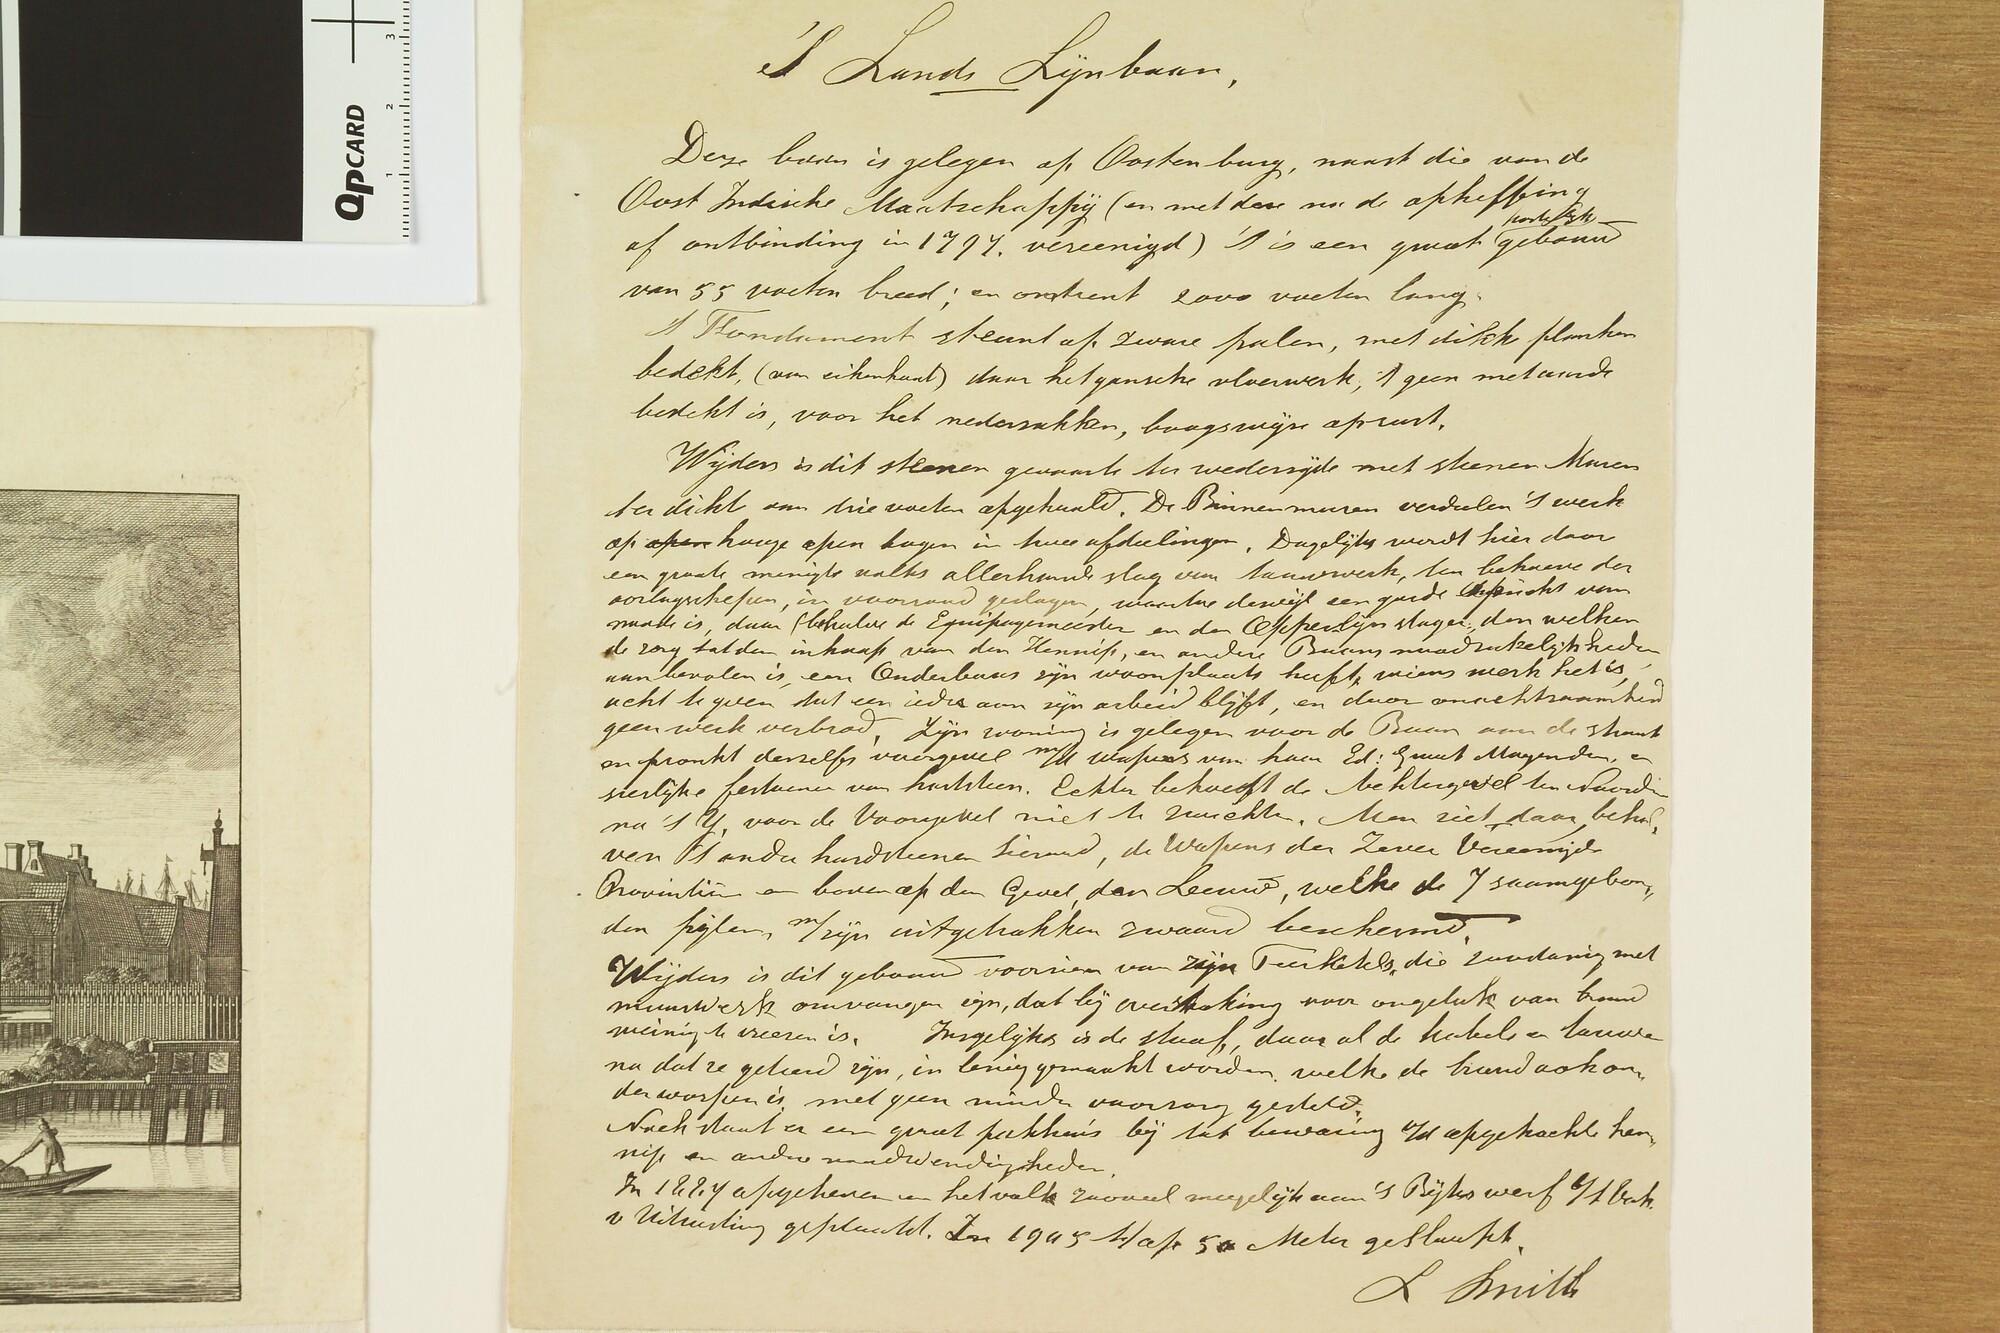 QPCARD
1
2
3
's Lands Lijnbaan,
Deze baan is gelegen op Oostenburg, naast die van de
Oost Indische Maatschappij (en met deze na de opheffing
of ontbinding in 1797. vereenigd) 't is een groot gebouw
van 55 voeten breed; en omtrent 2000 voeten lang.
't Fondament steunt op zware palen, met dikke planken
bedekt, (van eikenhout) daar het gansche vloerwerk, 't geen met aarde
bedekt is, voor het nederzakken, boogswijze op rust.
Wijders is dit steenen gevaarte ter wederzijde met steenen Muren
ter dikte van drie voeten opgehaald. De Binnenmuren verdeelen 't werk
op open hooge open bogen in twee afdeelingen. Dagelijks wordt hier door
een groote menigte volks allerhande slag van touwwerk, ten behoeve der
oorlogschepen, in voorraad geslagen, waartoe dewijl een goede opzicht van
noode is, daar (behalve de Equipagemeester en den Opperlijnslager, den welken
de zorg tot den inkoop van den Hennip, en andere Baans noodzakelijkheden
aanbevolen is, een Onderbaas zijn woonplaats heeft, wiens werk het is,
acht te geven dat een ieder aan zijn arbeid blijft, en door onachtzaamheid
geen werk verbrod. Zijn woning is gelegen voor de Baan aan de straat
en pronkt derzelfs voorgevel m/d wapens van haar Ed: Groot Mogenden, en
sierlijke festoenen van hardsteen. Echter behoeft de Achtergevel ten Noorden
na 't Y, voor de Voorgevel niet te zwichten. Men ziet daar, behal,
ven 't ander hardsteenen sieraad, de Wapens der Zeven Vereenigde
Provintiën en boven op den Gevel, den Leeuw, welke de 7 saamgebon,
den pijlen, m/zijn uitgetrokken zwaard beschermd.
Wijders is dit gebouw voorzien van zijn Teerketels, die zoodanig met
muurwerk omvangen zijn, dat bij overkoking voor ongeluk van brand
weinig te vreezen is. Insgelijks is de stoof, daar al de kabels en touwen
na dat ze geteerd zijn, in lenig gemaakt worden. welke de brand ook on,
derworpen is, met geen minder voorzorg gesteld.
Noch staat er een groot pakhuis bij tot bewaring v/d opgekochte hen,
nip en andere noodwendigheden.
In 1887 opgeheven en het volk zooveel mogelijk aan 's Rijks werf
v Uitrusting geplaatst. In 1905 op 50 Meter gesloopt.
L Smith